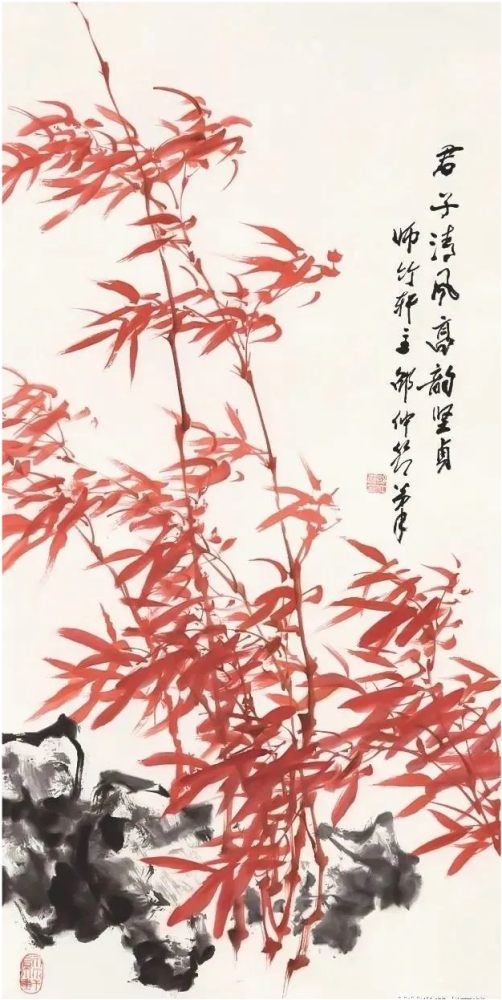 君子清风高韵坚贞
师竹轩主邵仲节笔